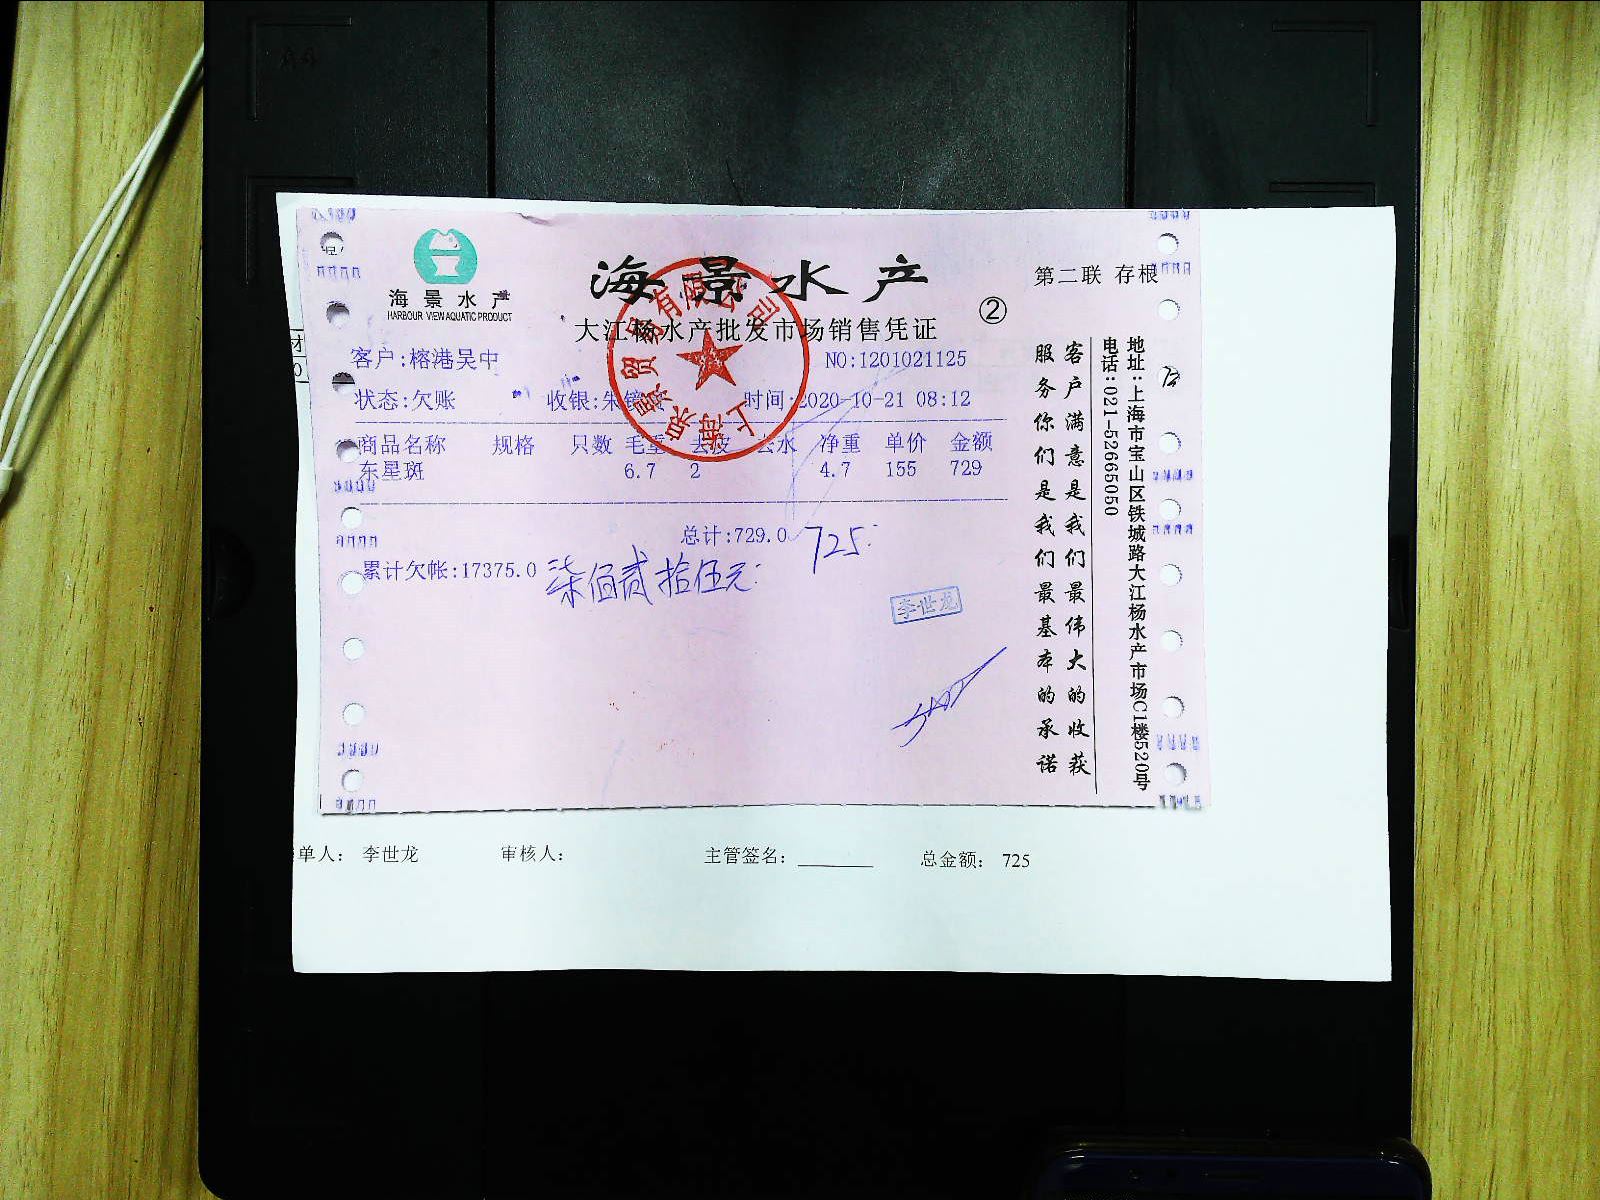 海景水产
HARBOUR VIEW AQUATIC PRODUCT
海景水产
第二联 存根
②
大江杨水产批发市场销售凭证
客户:榕港吴中
NO:1201021125
状态:欠账 收银:朱 时间:2020-10-21 08:12
商品名称 规格 只数 毛重 去皮 去水 净重 单价 金额
东星斑 6.7 2 4.7 155 729
总计:729.0 725
累计欠帐:17375.0 柒佰贰拾伍元
李世龙
客户满意是我们最伟大的收获
服务你们是我们最基本的承诺
地址:上海市宝山区铁城路大江杨水产市场C1楼520号
电话:021-52665050
单人: 李世龙 审核人: 主管签名: 总金额: 725